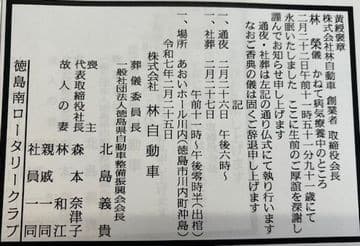 黄綬褒章
株式会社林自動車 創業者 取締役会長
林 榮儀 かねて病気療養中のところ
二月二十二日午前十一時五十一分九十一歳にて
永眠いたしました ここに生前のご厚誼を深謝し
謹んでお知らせ申し上げます
通夜・社葬は左記の通り仏式にて執り行います
なおご香典の儀は固くご辞退申し上げます
記
一、通夜 二月二十六日 午後六時〜
一、社葬 二月二十七日
午前十一時〜午後零時半(出棺)
一、場所 あおいホール川内(徳島市川内町沖島)
令和七年二月二十五日
株式会社 林自動車
葬儀委員長
一般社団法人徳島県自動車整備振興会会長
北島義貴
喪主
代表取締役社長 森本奈津子
故人の妻 林和江
親戚一同
社員一同
徳島南ロータリークラブ